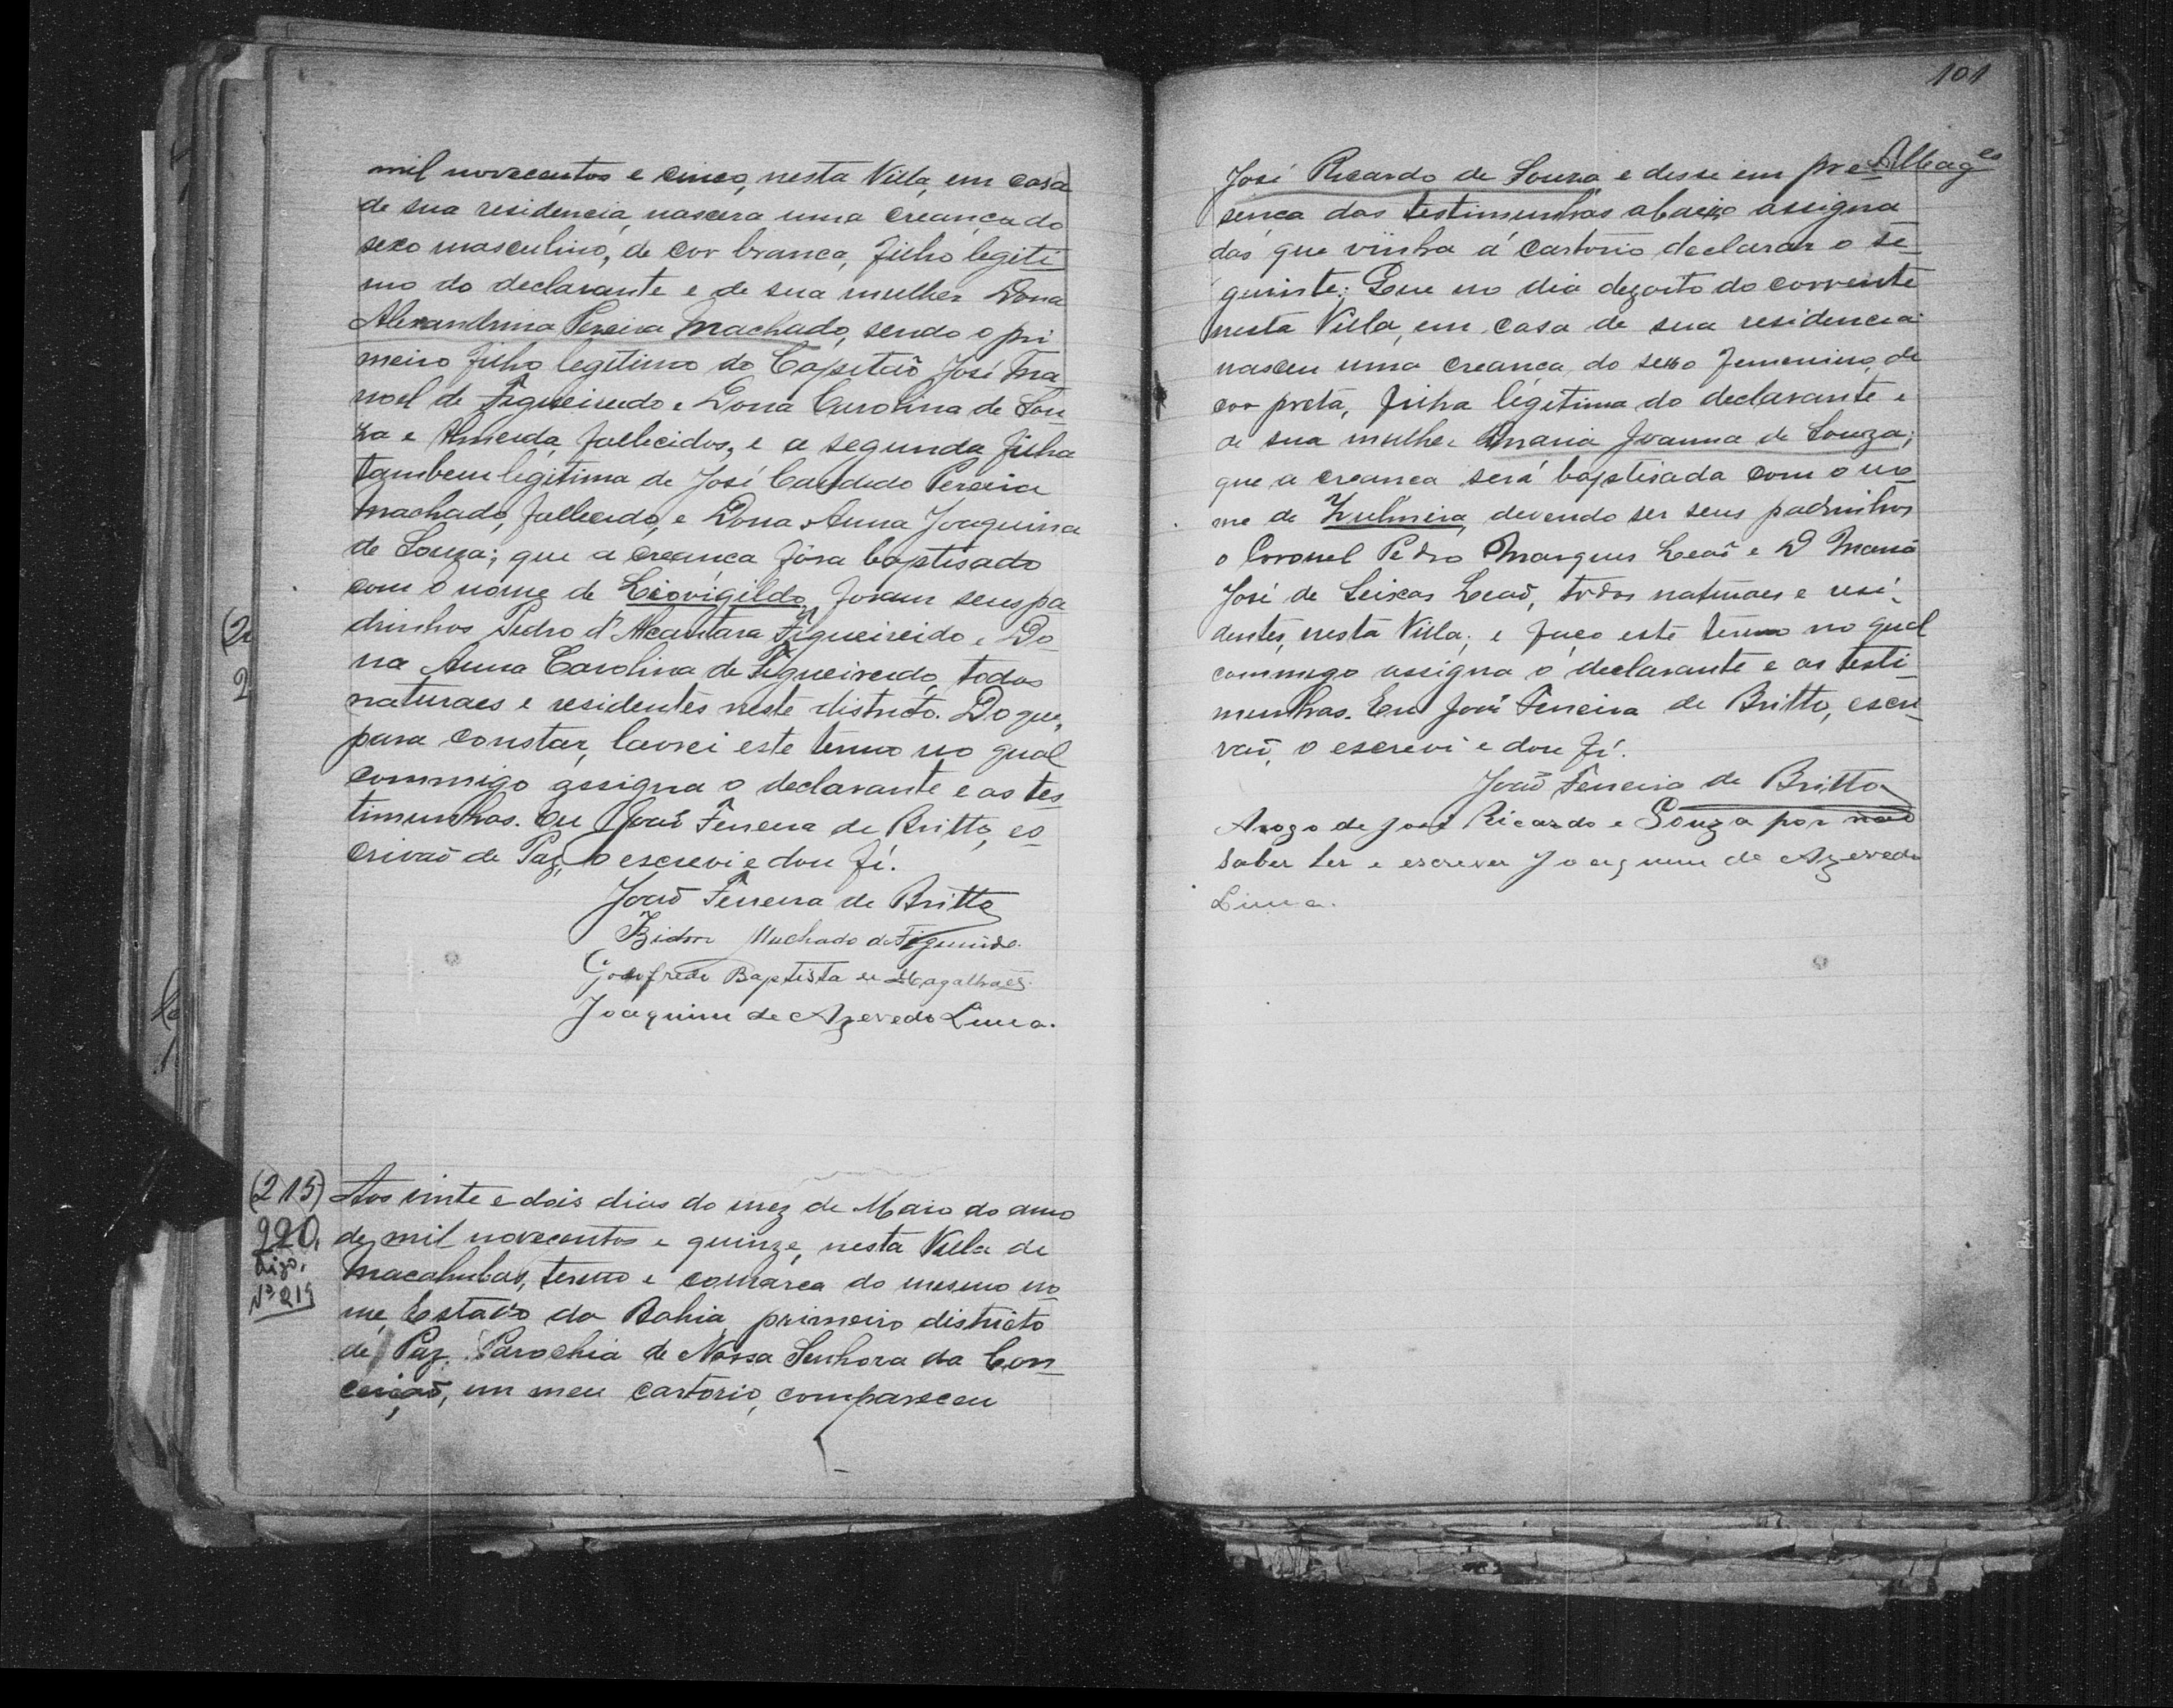 mil novecentos e cinco, nesta Villa, em casa
de sua residencia, nascera uma creança do
sexo masculino, de cor branca, filho legiti
mo do declarante e de sua mulher Dona
Alexandrina Pereira Machado, sendo o pri
meiro filho legitimo do Capitaõ José Ma
noel de Figueiredo e Dona Carolina de Sou
za e Almeida, fallecidos, e a segunda filha
tambem legitima de José Candido Pereira
Machado, fallecido, e Dona Anna Joaquina
de Souza; que a creança fôra baptisado
com o nome de Leovigildo, foram seus pa
drinhos Pedro d'Alcantara Figueireido e Do
na Anna Carolina de Figueiredo, todos
naturaes e residentes neste districto. Do que,
para constar, lavrei este termo no qual
commigo assigna o declarante e as tes
timunhas. Eu Joaõ Ferreira de Britto, es
crivaõ de Paz, o escrevi e dou fé.
Joaõ Ferreira de Britto
Izidoro Machado de Figueirêdo.
Godofredo Baptista de Magalhães.
Joaquim de Azevedo Lima.
(215)
220.
Digo,
Nº 219
Aos vinte e dois dias do mez de Maio do anno
de mil novecentos e quinze, nesta Villa de
Macahubas, termo e comarca do mesmo no
me, Estado da Bahia, primeiro districto
de Paz. Parochia de Nossa Senhora da Con
ceiçaõ, em meu cartorio, compareceu
(2
2
101
José Ricardo de Souza e disse em pre
sença das testimunhas abaixo assigna
das que vinha á cartorio declarar o se
guinte: Que no dia dezoito do corrente
nesta Villa, em casa de sua residencia
nasceu uma creança do sexo femenino, de
cor preta, filha legitima do declarante e
de sua mulher Maria Joanna de Souza;
que a creança será baptisada com o no
me de Zulmira, devendo ser seus padrinhos
o Coronel Pedro Marques Leaõ e D Maria
José de Seixas Leaõ, todos naturaes e resi
dentes, nesta Villa; e faço este termo no qual
commigo assigna o declarante e as testi
munhas. Eu Joaõ Ferreira de Britto, escri
vaõ, o escrevi e dou fé.
Joaõ Ferreira de Britto
Arogo de José Ricardo e Souza por naõ
saber ler e escrever Joaquim de Azevedo
Lima.